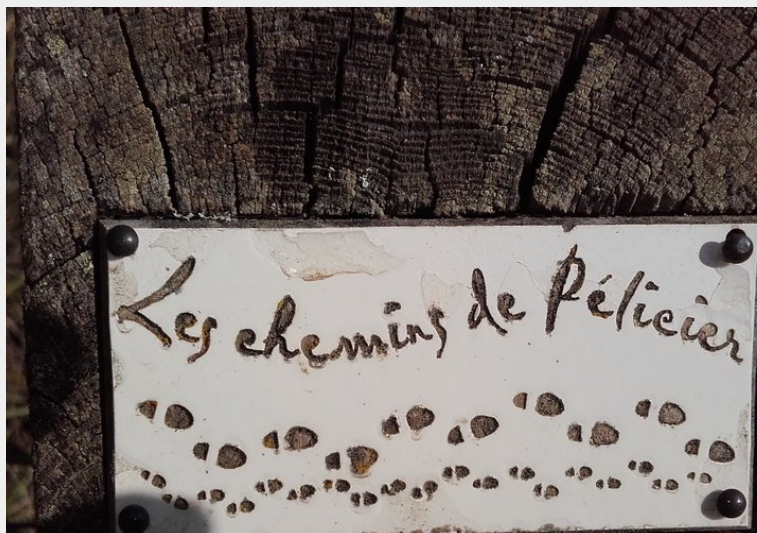 Les chemins de Pélicier